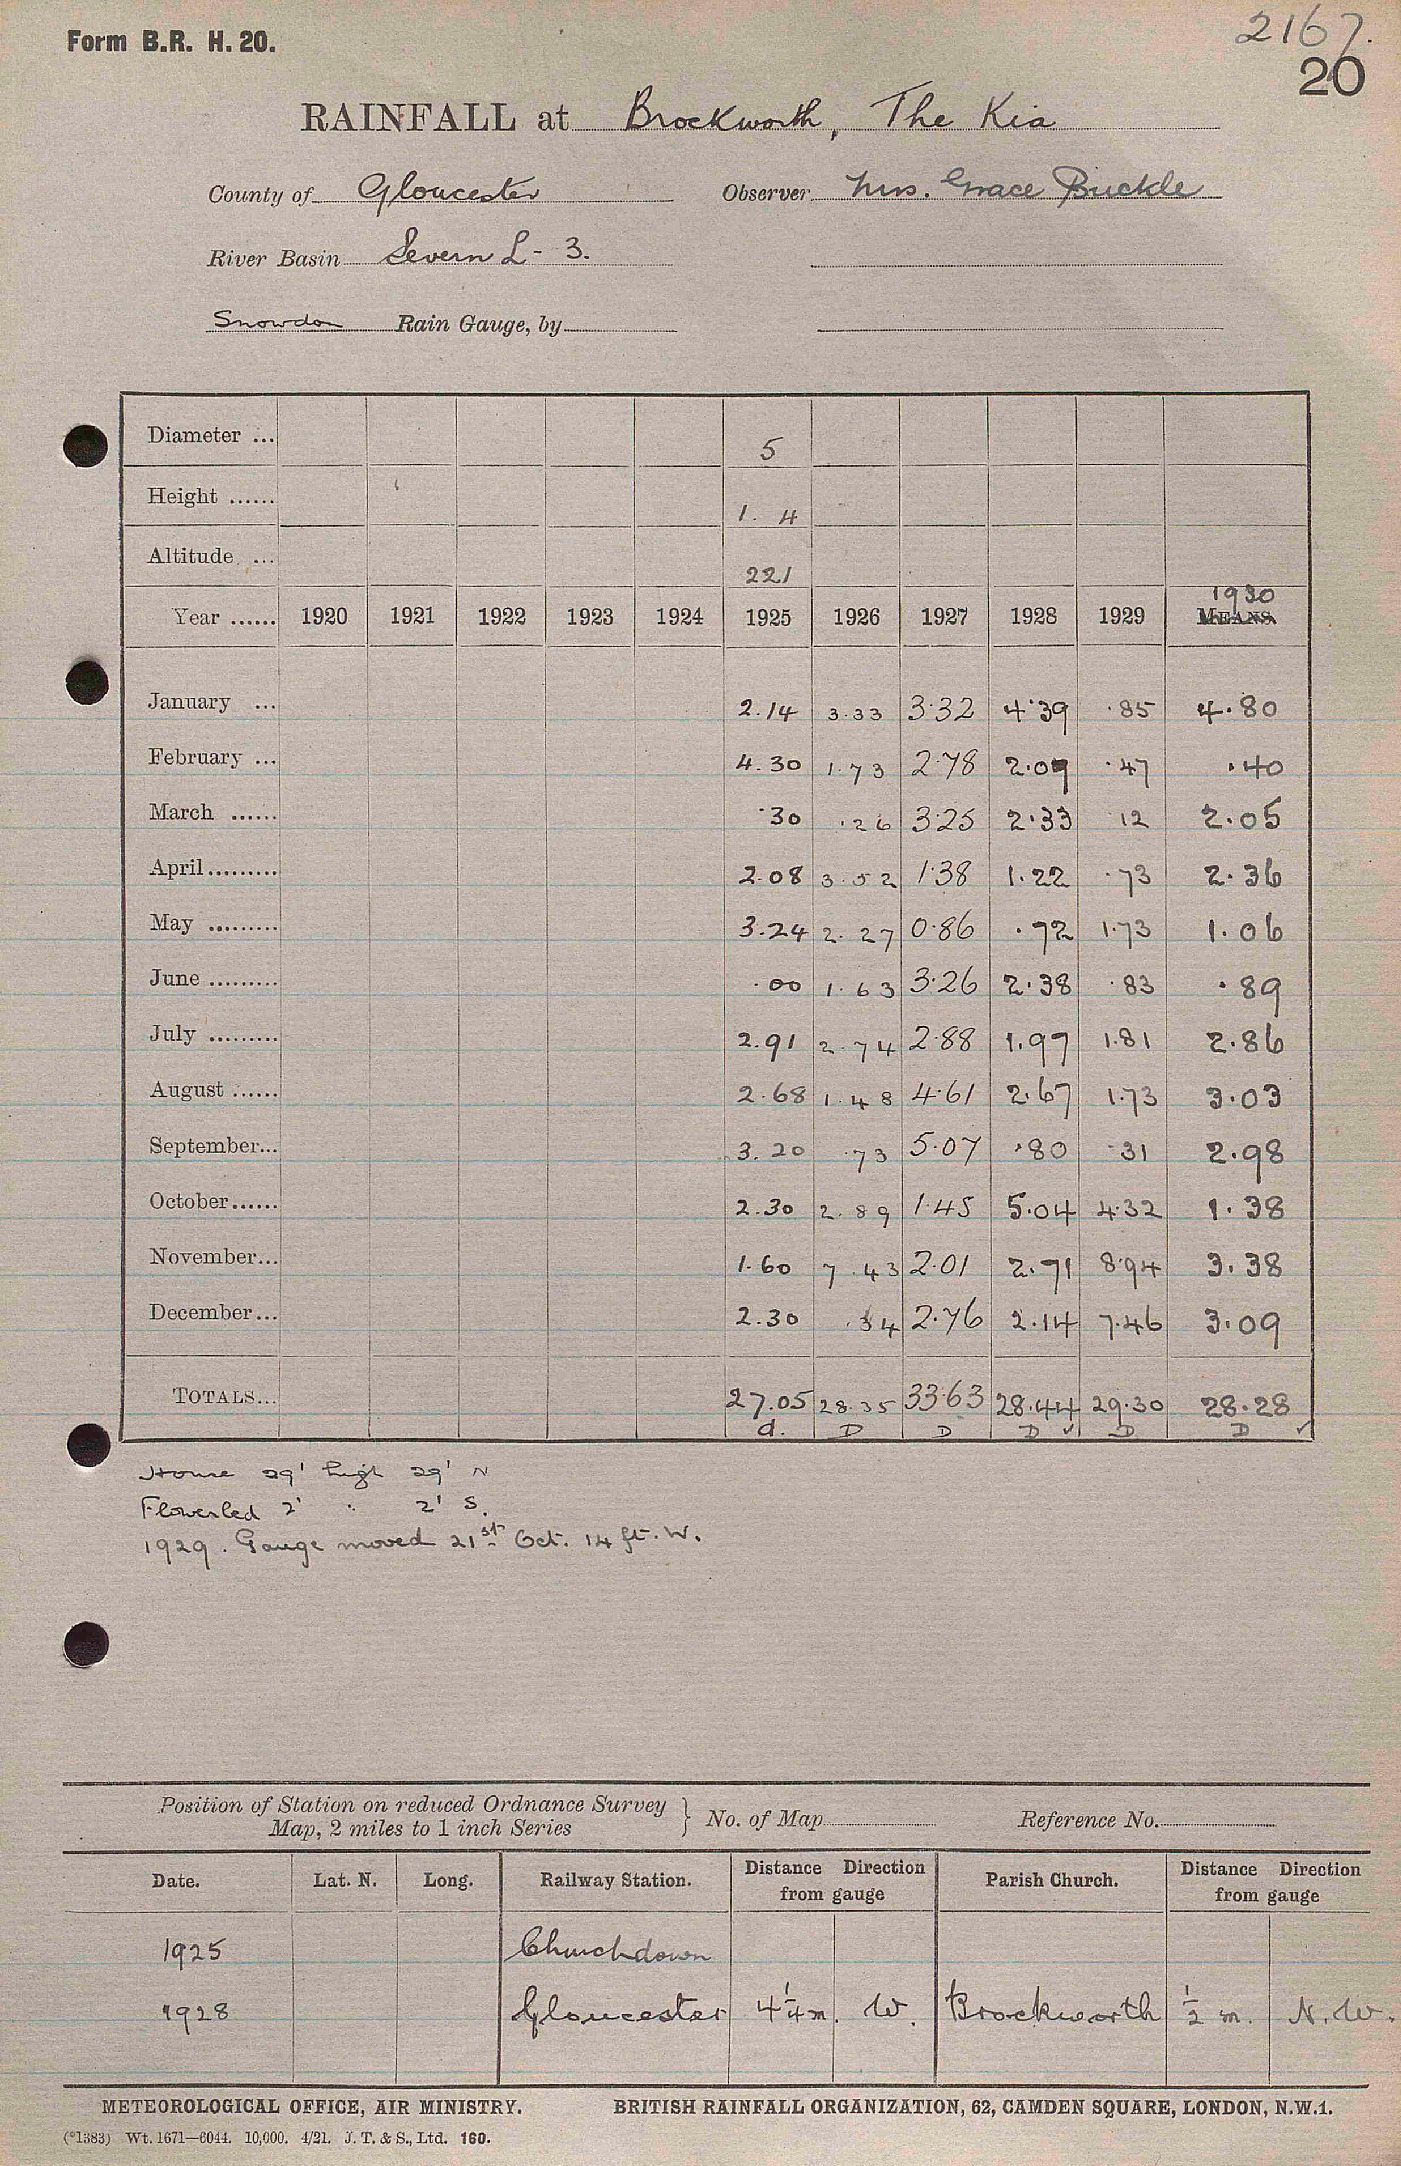 Form B.R. H. 20.
2167.
20
RAINFALL at Brockworth, The Kia
County of Gloucester Observer Mrs. Grace Buckle
River Basin Severn L - 3.
Snowdon Rain Gauge, by
Diameter ... 5
Height ...... 1. 4
Altitude ... 221
1930
Year ...... 1920 1921 1922 1923 1924 1925 1926 1927 1928 1929 MEANS
January ... 2.14 3.33 3.32 4.39 .85 4.80
February ... 4.30 1.73 2.78 2.09 .47 .40
March ...... .30 .26 3.25 2.33 .12 2.05
April ......... 2.08 3.52 1.38 1.22 .73 2.36
May ......... 3.24 2.27 0.86 .72 1.73 1.06
June ......... .00 1.63 3.26 2.38 .83 .89
July ......... 2.91 2.74 2.88 1.97 1.81 2.86
August ...... 2.68 1.48 4.61 2.67 1.73 3.03
September... 3.20 .73 5.07 .80 .31 2.98
October ...... 2.30 2.89 1.45 5.04 4.32 1.38
November... 1.60 7.43 2.01 2.71 8.94 3.38
December... 2.30 .34 2.76 2.14 7.46 3.09
TOTALS... 27.05 28.35 33.63 28.44 29.30 28.28
d. D D D ✓ D D ✓
House 29' high 29' N
Flowerbed 2' " 2' S.
1929. Gauge moved 21st Oct. 14 ft. W.
Position of Station on reduced Ordnance Survey
Map, 2 miles to 1 inch Series } No. of Map Reference No.
Date. Lat. N. Long. Railway Station. Distance Direction from gauge Parish Church. Distance Direction from gauge
1925 Churchdown
1928 Gloucester 4¼ m. W. Brockworth ½ m. N.W.
METEOROLOGICAL OFFICE, AIR MINISTRY. BRITISH RAINFALL ORGANIZATION, 62, CAMDEN SQUARE, LONDON, N.W.1.
(*1383) Wt. 1671—6044. 10,000. 4/21. J. T. & S., Ltd. 160.